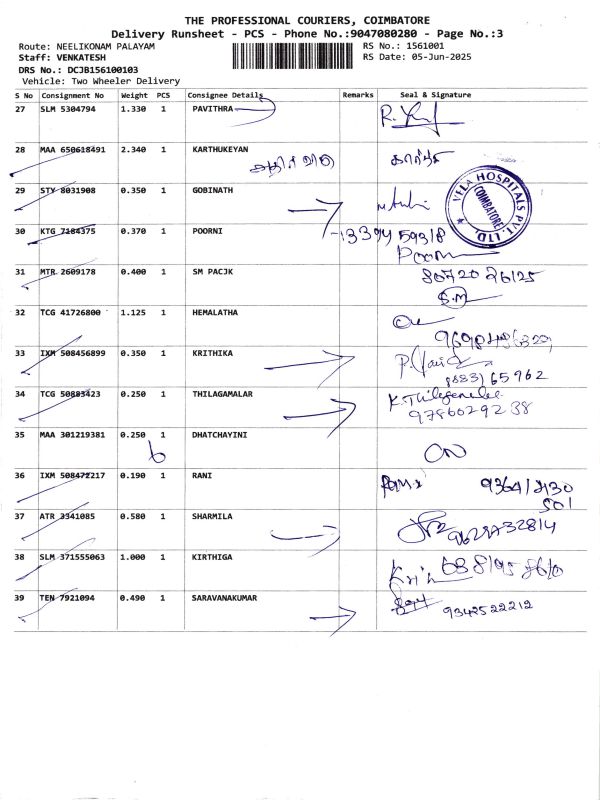 THE PROFESSIONAL COURIERS, COIMBATORE
Delivery Runsheet - PCS - Phone No.:9047080280 - Page No.:3
Route: NEELIKONAM PALAYAM
RS No.: 1561001
Staff: VENKATESH
RS Date: 05-Jun-2025
DRS No.: DCJB156100103
Vehicle: Two Wheeler Delivery
S No Consignment No Weight PCS Consignee Details Remarks Seal & Signature
27 SLM 5304794 1.330 1 PAVITHRA
28 MAA 650618491 2.340 1 KARTHUKEYAN
29 STY 8031908 0.350 1 GOBINATH
VELA HOSPITALS PVT. LTD.
COIMBATORE
30 KTG 7184375 0.370 1 POORNI
31 MTR 2609178 0.400 1 SM PACJK
80720 26125
S.M
32 TCG 41726800 1.125 1 HEMALATHA
33 IXM 508456899 0.350 1 KRITHIKA
34 TCG 50883423 0.250 1 THILAGAMALAR
9786029238
35 MAA 301219381 0.250 1 DHATCHAYINI
36 IXM 508472217 0.190 1 RANI
37 ATR 3341085 0.580 1 SHARMILA
38 SLM 371555063 1.000 1 KIRTHIGA
39 TEN 7921094 0.490 1 SARAVANAKUMAR
9342522212